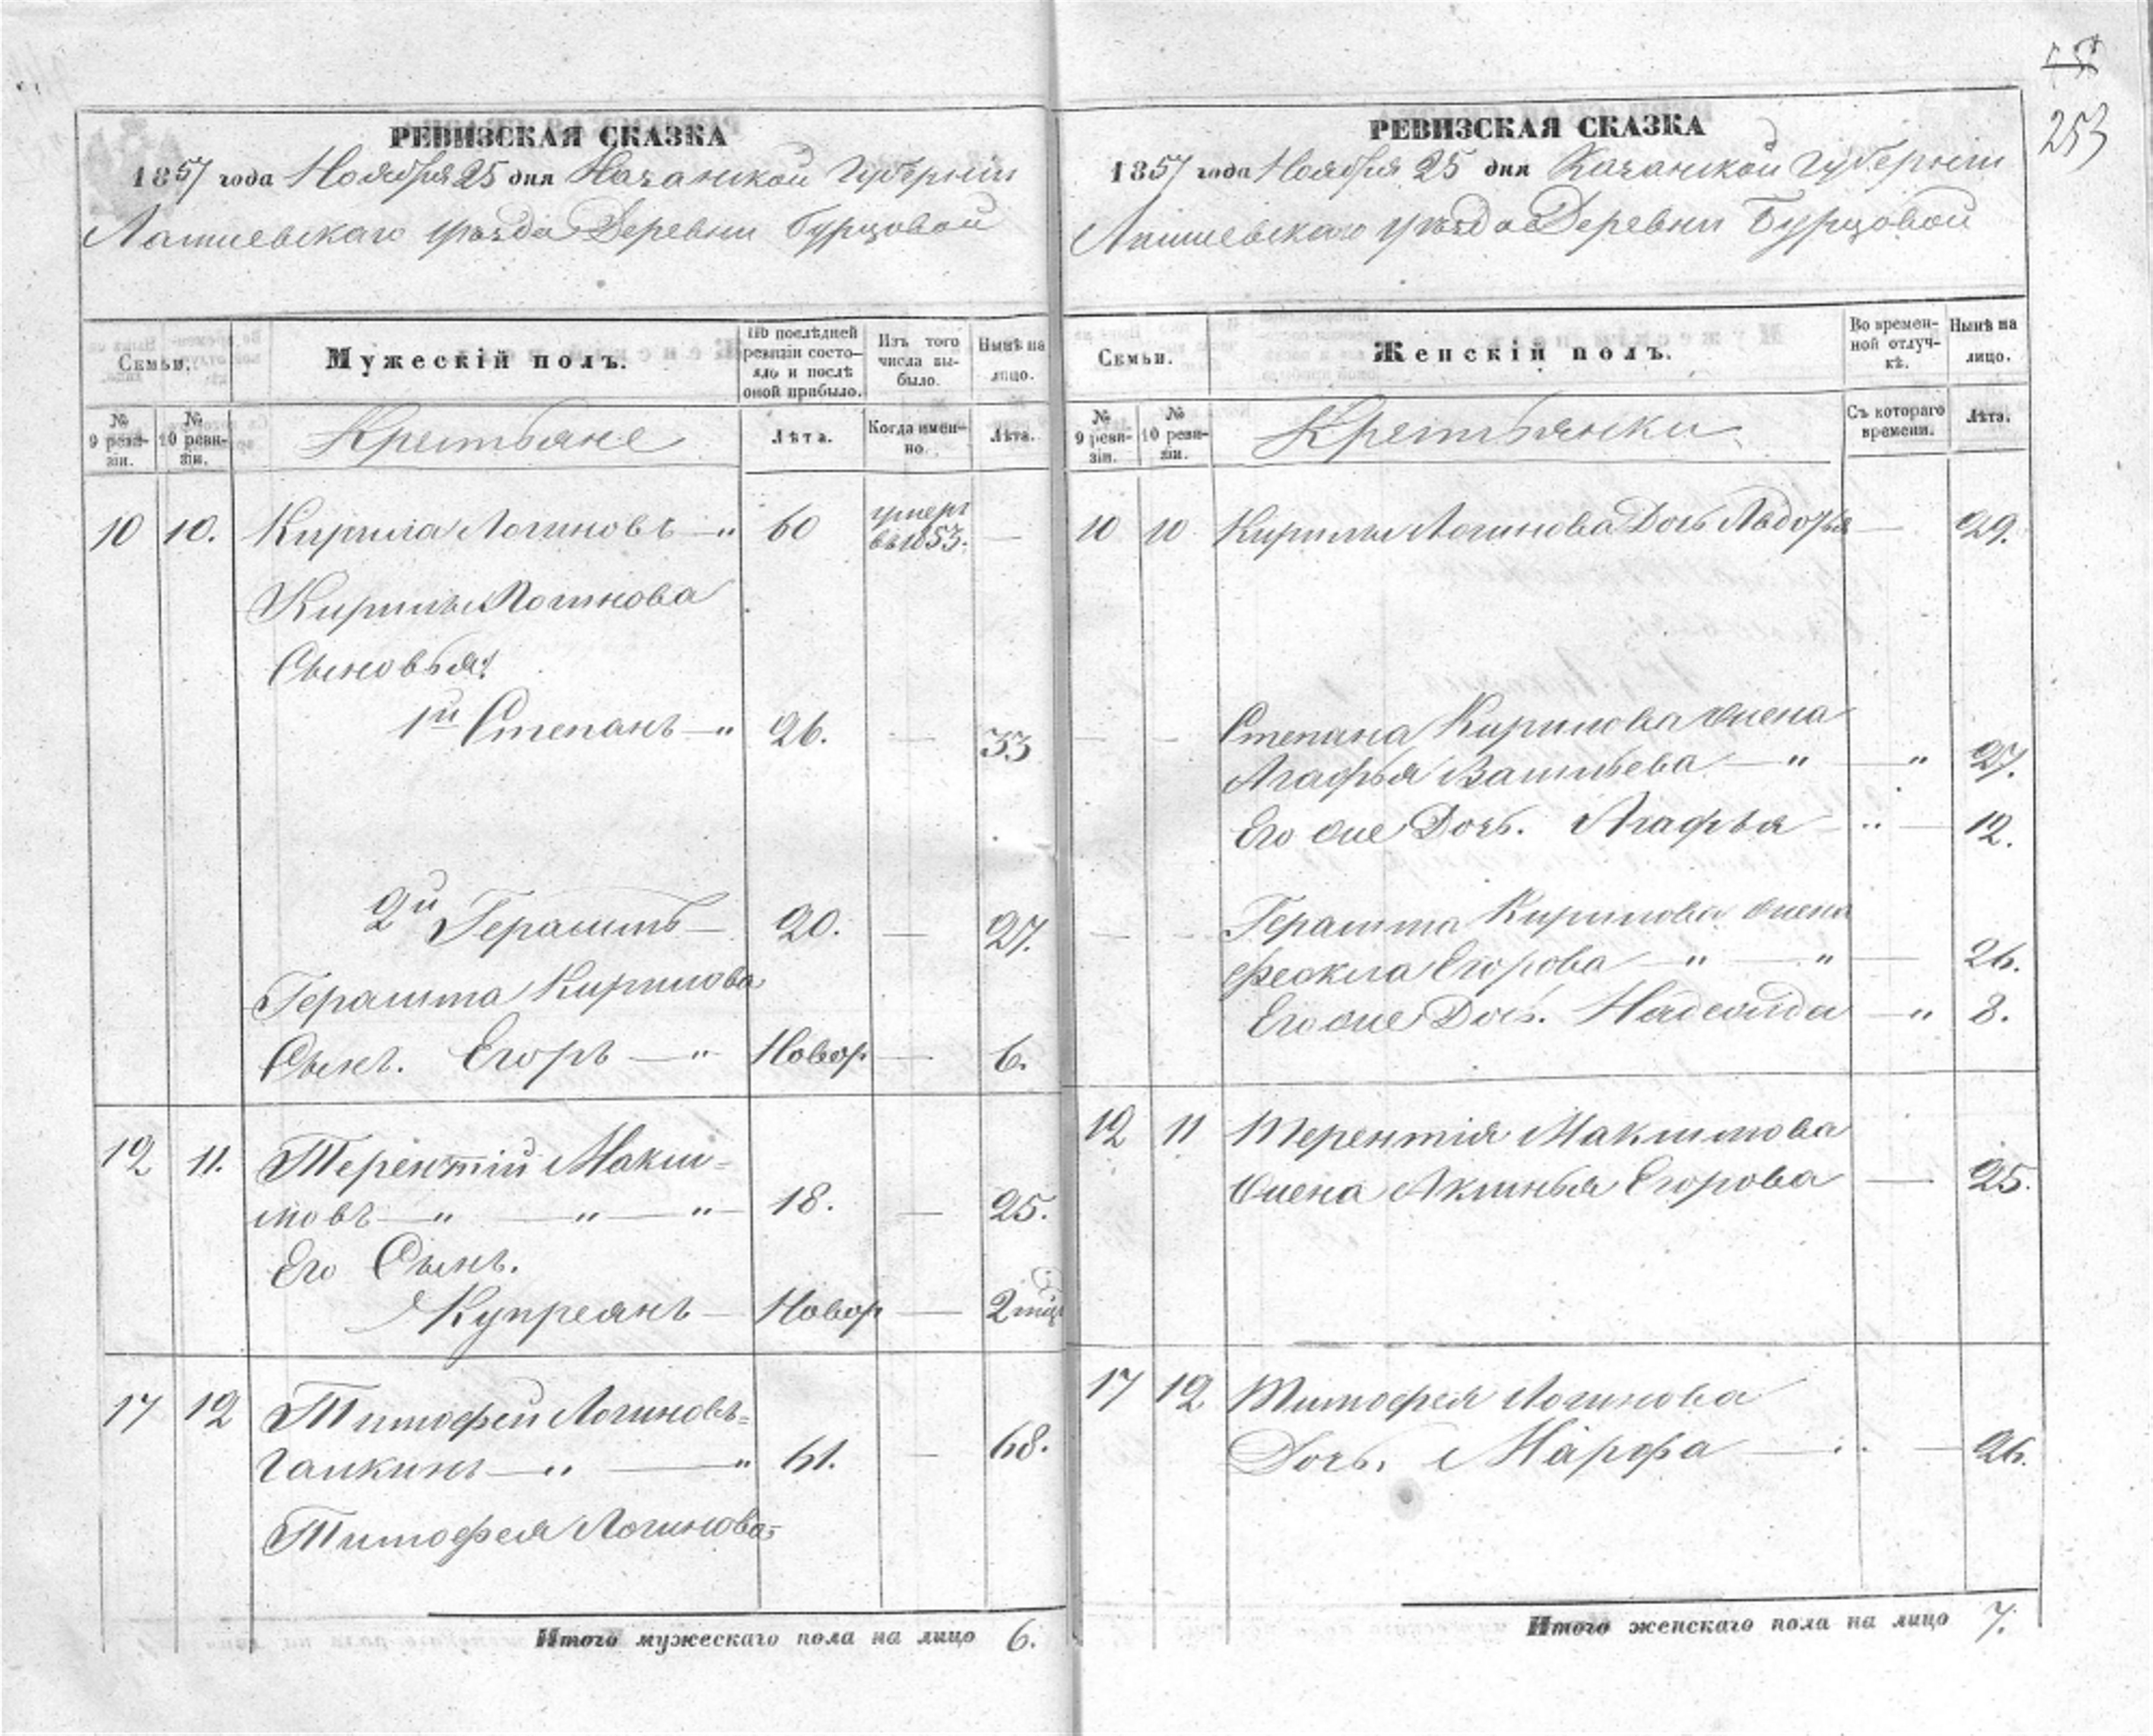 РЕВИЗСКАЯ СКАЗКА
1857 года Ноября 25 дня Казанской Губернiи
Лаишевскаго уѣзда Деревни Бурцовой
Семьи.
Мужескiй полъ.
По послѣдней ревизiи состояло и послѣ оной прибыло.
Изъ того числа выбыло.
Нынѣ на лицо.
№ 9 ревизiи.
№ 10 ревизiи.
Крестьяне
Лѣта.
Когда именно.
Лѣта.
10 10. Кирила Логиновъ — " 60 умеръ въ 1853. —
Кирилы Логинова
Сыновья:
1й Степанъ — " 26. — 33
2й Герасимъ — 20. — 27.
Герасима Кирилова
Сынъ. Егоръ — " Новор — 6.
12 11. Терентiй Макси-
мовъ — " — " — " 18. — 25.
Его Сынъ.
Купреянъ — Новор — 2 мѣс
17 12 Тимофей Логиновъ=
Галкинъ — " — " 61. — 68.
Тимофея Логинова=
Итого мужескаго пола на лицо 6.
253
РЕВИЗСКАЯ СКАЗКА
1857 года Ноября 25 дня Казанской Губернiи
Лаишевскаго уѣзда Деревни Бурцовой
Семьи.
Женскiй полъ.
Во временной отлучкѣ.
Нынѣ на лицо.
№ 9 ревизiи.
№ 10 ревизiи.
Крестьянки
Съ котораго времени.
Лѣта.
10 10 Кирилы Логинова Дочь Авдотья — 29.
Степана Кирилова жена
Агафья Васильева — " — " 27.
Его же Дочь. Агафья — " — 12.
Герасима Кирилова жена
Феокла Егорова — " — " — 26.
Его же Дочь. Надежда — " 8.
12 11 Терентiя Максимова
жена Аксинья Егорова — 25.
17 12 Тимофея Логинова
Дочь. Марфа — " — 26.
Итого женскаго пола на лицо 7.